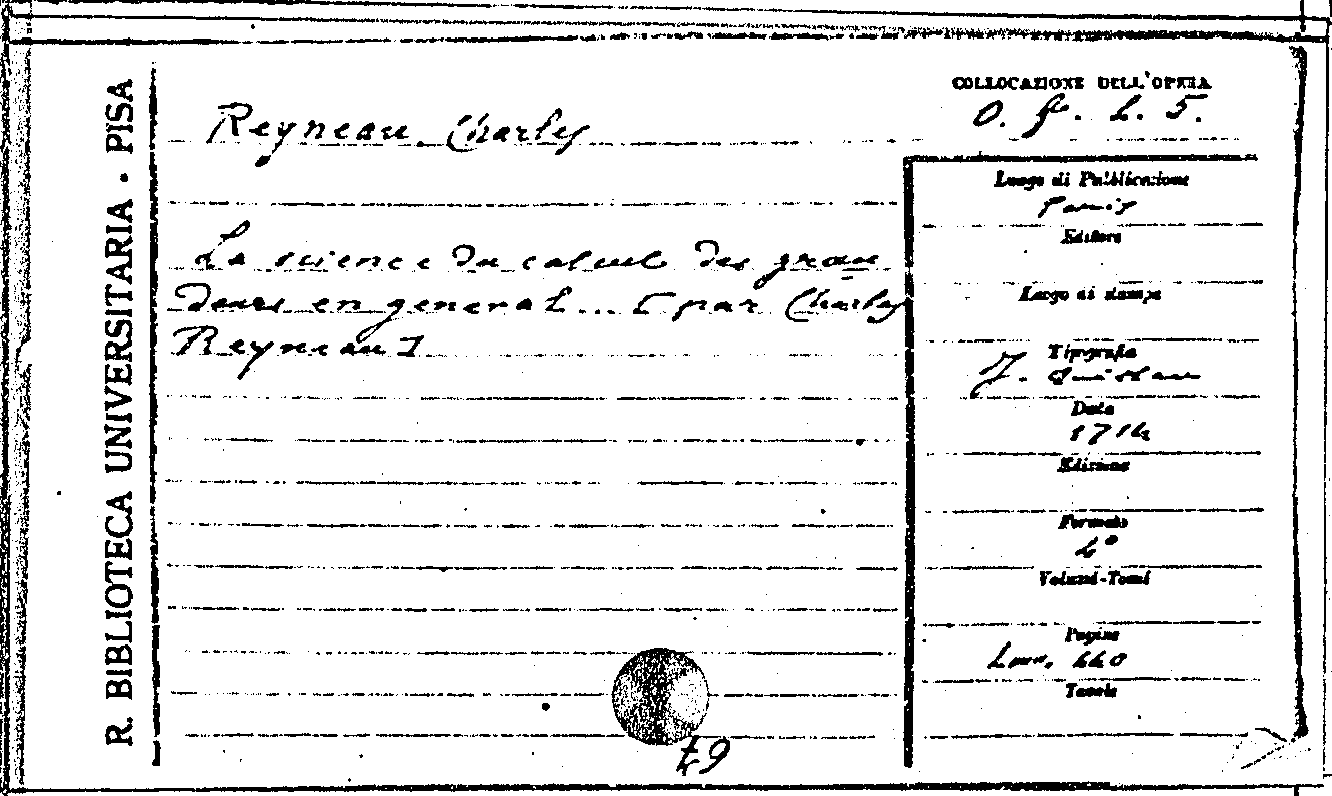 R. BIBLIOTECA UNIVERSITARIA · PISA
Reyneau Charles
La science du calcul des gran
deurs en general... [par Charles
Reyneau]
COLLOCAZIONE DELL'OPERA
Luogo di Pubblicazione
Paris
Editore
Luogo di stampa
Tipografia
J. Quillau
Data
1714
Edizione
Formato
4°
Volumi-Tomi
Pagine
Tavole